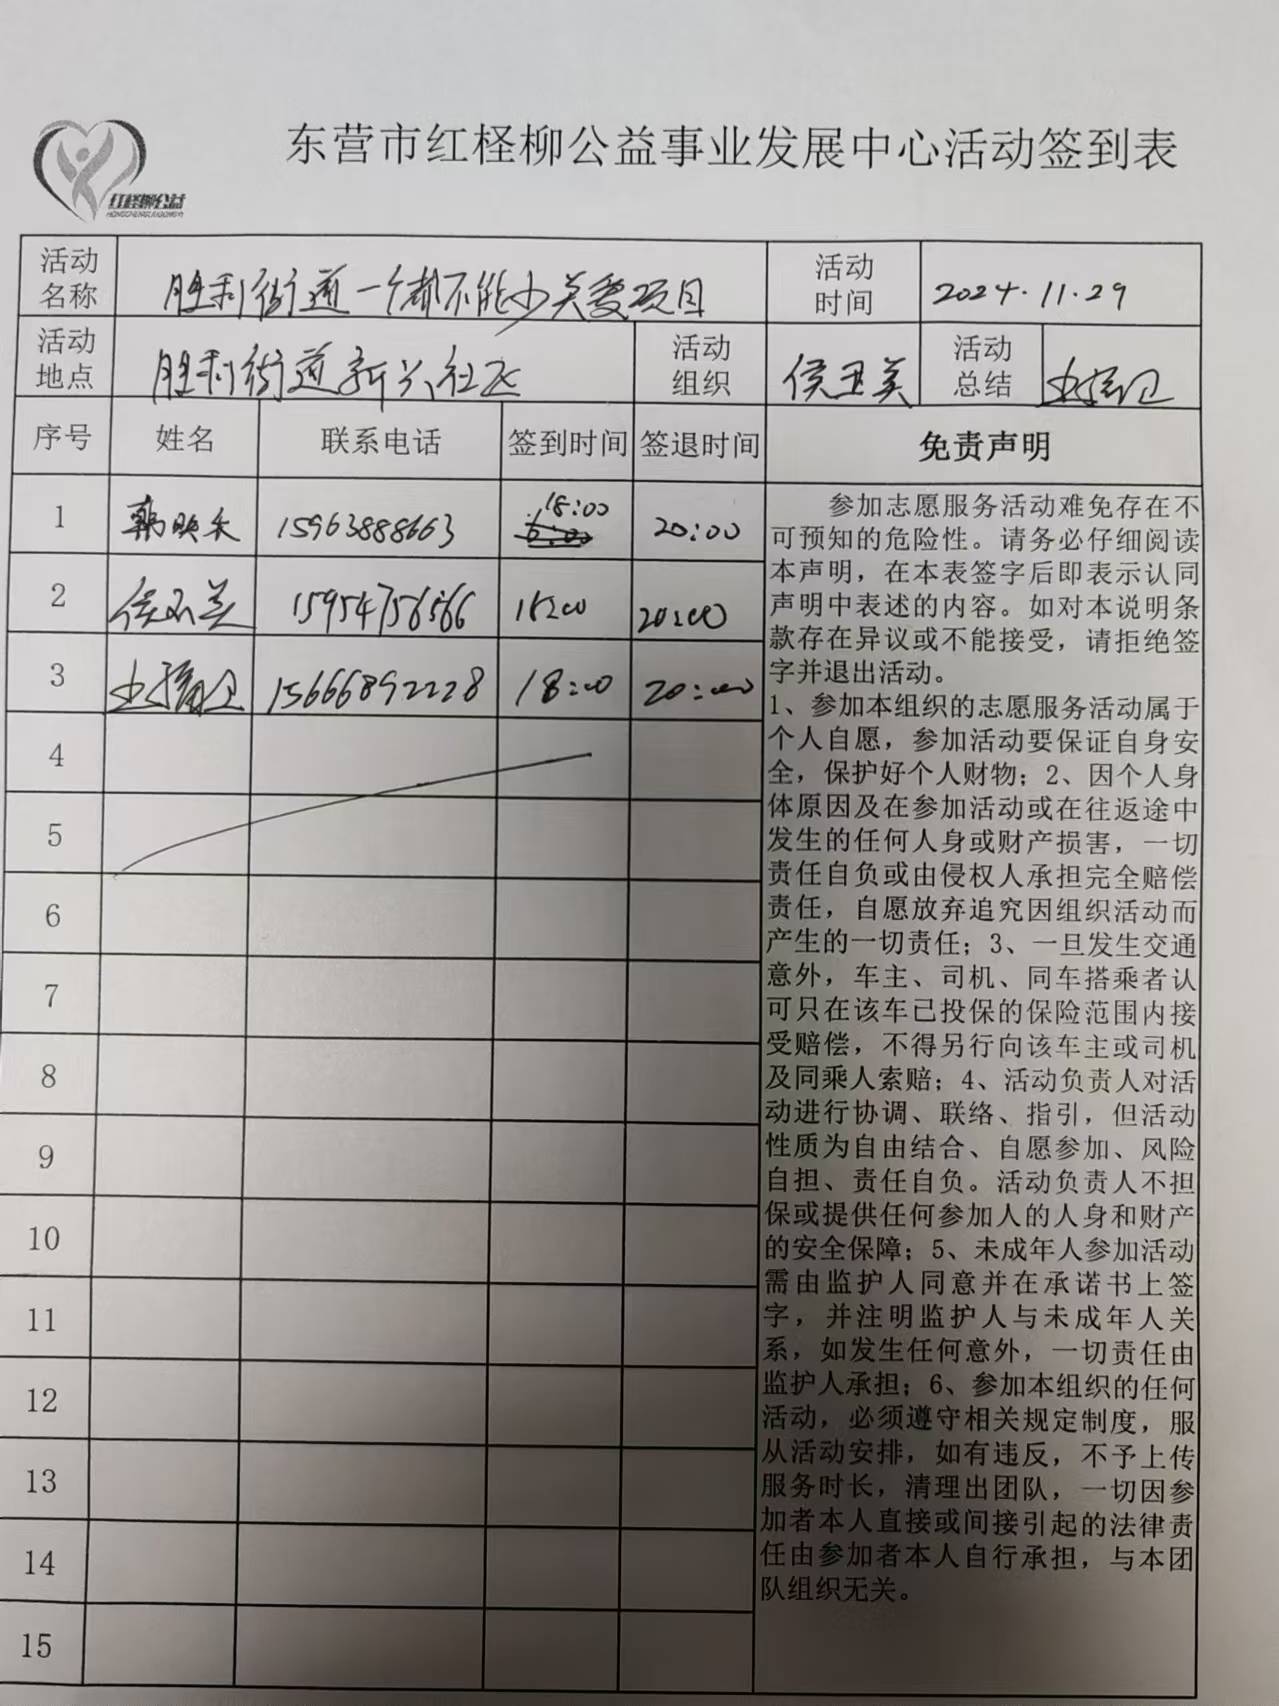 东营市红柽柳公益事业发展中心活动签到表
红柽柳公益
活动名称 胜利街道一个都不能少关爱项目 活动时间 2024.11.29
活动地点 胜利街道新兴社区 活动组织 侯玉美 活动总结
序号 姓名 联系电话 签到时间 签退时间 免责声明
1 韩映禾 15963888663 18:00 20:00
2 侯玉美 15954756566 18:00 20:00
3 15666892228 18:00 20:00
4
5
6
7
8
9
10
11
12
13
14
15
参加志愿服务活动难免存在不
可预知的危险性。请务必仔细阅读
本声明，在本表签字后即表示认同
声明中表述的内容。如对本说明条
款存在异议或不能接受，请拒绝签
字并退出活动。
1、参加本组织的志愿服务活动属于
个人自愿，参加活动要保证自身安
全，保护好个人财物；2、因个人身
体原因及在参加活动或在往返途中
发生的任何人身或财产损害，一切
责任自负或由侵权人承担完全赔偿
责任，自愿放弃追究因组织活动而
产生的一切责任；3、一旦发生交通
意外，车主、司机、同车搭乘者认
可只在该车已投保的保险范围内接
受赔偿，不得另行向该车主或司机
及同乘人索赔；4、活动负责人对活
动进行协调、联络、指引，但活动
性质为自由结合、自愿参加、风险
自担、责任自负。活动负责人不担
保或提供任何参加人的人身和财产
的安全保障；5、未成年人参加活动
需由监护人同意并在承诺书上签
字，并注明监护人与未成年人关
系，如发生任何意外，一切责任由
监护人承担；6、参加本组织的任何
活动，必须遵守相关规定制度，服
从活动安排，如有违反，不予上传
服务时长，清理出团队，一切因参
加者本人直接或间接引起的法律责
任由参加者本人自行承担，与本团
队组织无关。